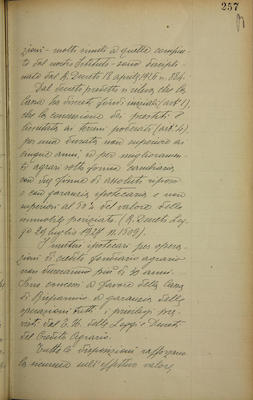 257
zioni - molto simili a quelle compiu-
te dal nostro Istituto - sono discipli-
nate dal R. Decreto 18 aprile 1926 n. 884.
Dal decreto predetto si rileva che la
Cassa ha diversi fondi (art. 1),
che la concessione dei prestiti è
limitata ai terreni (art. 4),
per una durata non superiore ai
cinque anni, ed per miglioramen-
ti agrari sotto forma cambiaria,
con garanzia ipotecaria e non
superiori al 50% del valore dello
immobile periziato (R. Decreto Leg-
ge 29 luglio 1927 n. 1509).
I mutui ipotecari per opera-
zioni di credito fondiario agrario
non dureranno più di 30 anni.
Sono concessi a favore della Cassa
di Risparmio a garanzia delle
operazioni tutti i privilegi pre-
visti dal T. U. delle Leggi e Decreti
sul Credito Agrario.
Tutte le disposizioni rafforzano
la sicurezza nell'effettivo valore